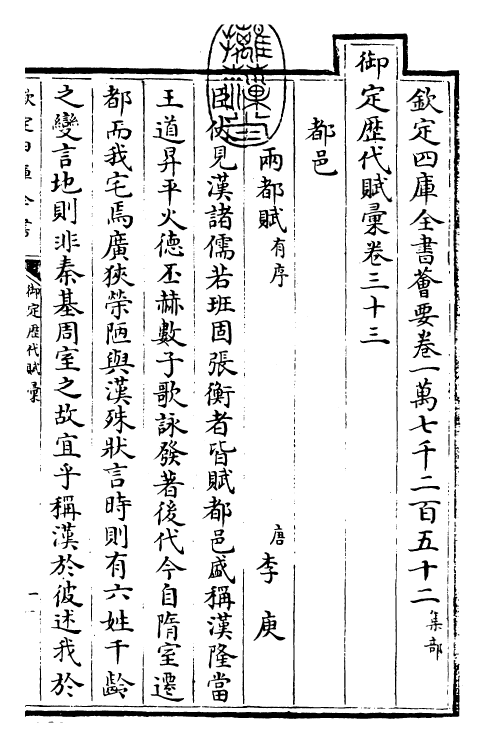 欽定四庫全書薈要卷一萬七千二百五十二 集部
御定歴代賦彙卷三十三
都邑
兩都賦 有序 唐 李庚
臣伏見漢諸儒若班固張衡者皆賦都邑盛稱漢隆當
王道昇平火德丕赫數子歌詠發著後代今自隋室遷
都而我宅焉廣狹榮陋與漢殊狀言時則有六姓千齡
之變言地則非秦基周室之故宜乎稱漢於彼述我於
欽定四庫全書 御定歴代賦彙 一